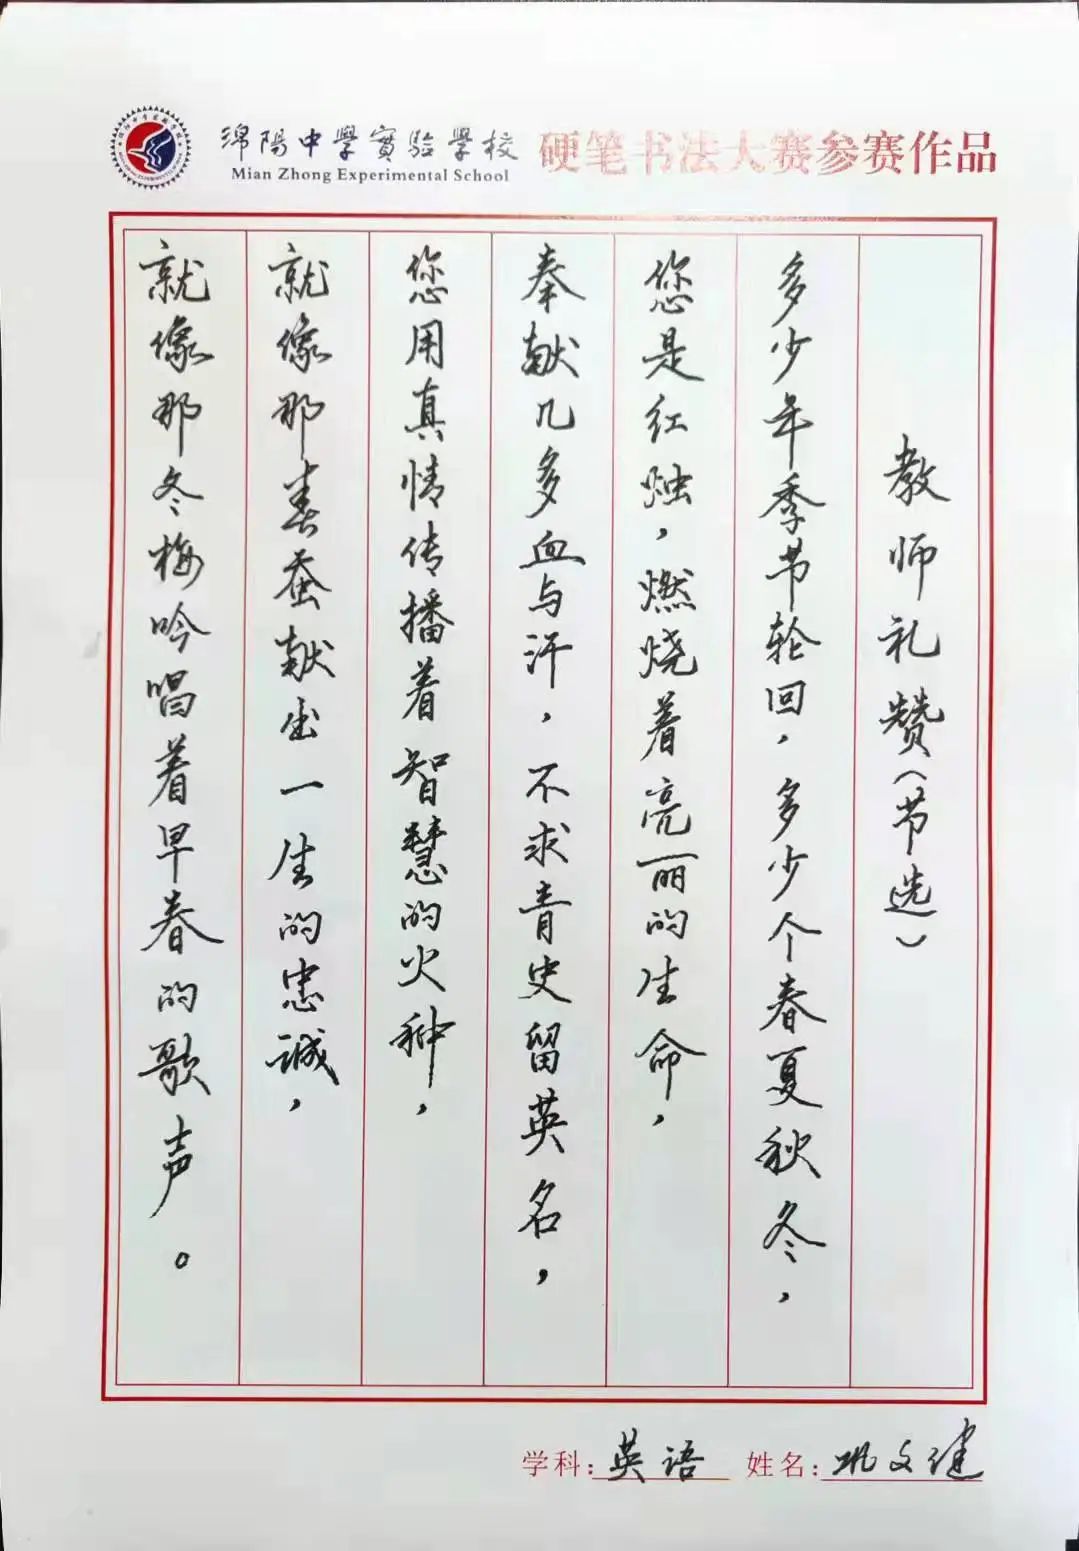 綿陽中學實驗學校
Mian Zhong Experimental School
硬笔书法大赛参赛作品
教师礼赞（节选）
多少年季节轮回，多少个春夏秋冬，
您是红烛，燃烧着亮丽的生命，
奉献几多血与汗，不求青史留英名，
您用真情传播着智慧的火种，
就像那春蚕献出一生的忠诚，
就像那冬梅吟唱着早春的歌声。
学科：英语
姓名：巩文健